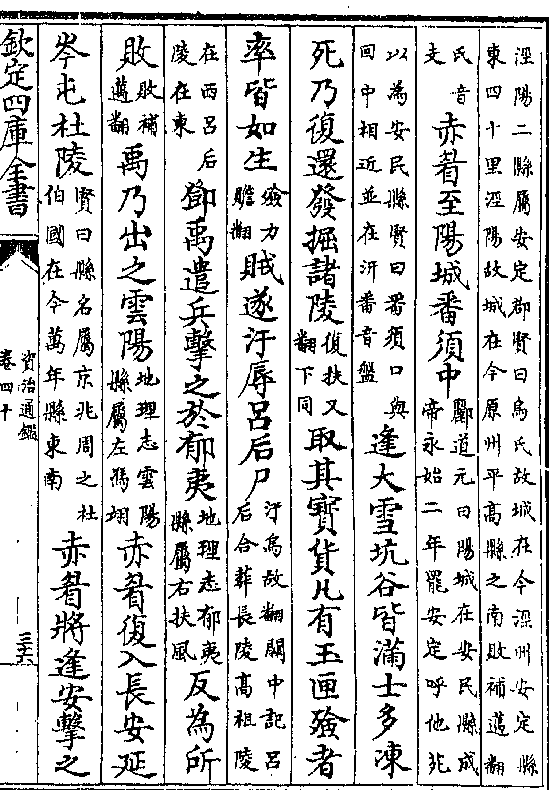 涇陽二縣屬安定郡賢曰烏氏故城在今深州安定縣
東四十里涇陽故城在今原州平高縣之南敗補邁翻
氏音
支
赤眉至陽城番須中
酈道元曰陽城在安民縣成
帝永始二年罷安定呼他苑
以為安民縣賢曰番須口與
回中相近並在汧番音盤
逢大雪坑谷皆滿士多凍
死乃復還發掘諸陵
復扶又
翻下同
取其寳貨凡有玉匣殮者
率皆如生
殮力
贍翻
賊遂汙辱呂后尸
汙烏故翻關中記呂
后合葬長陵高祖陵
在西呂后
陵在東
鄧禹遣兵擊之於郁夷
地理志郁夷
縣屬右扶風
反為所
敗
敗補
邁翻
禹乃出之雲陽
地理志雲陽
縣屬左馮翊
赤眉復入長安延
岑屯杜陵
賢曰縣名屬京兆周之杜
伯國在今萬年縣東南
赤眉將逢安擊之
欽定四庫全書
資治通鑑
卷四十
三六